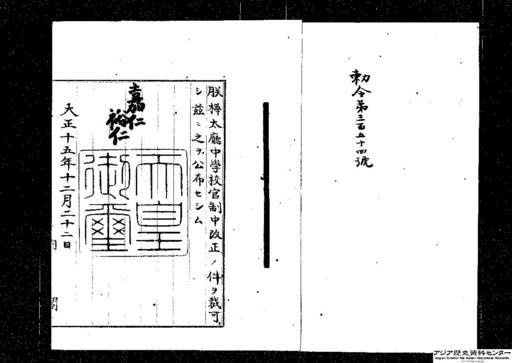 勅令第三百五十四號
朕樺太廳中學校官制中改正ノ件ヲ裁可
シ茲ニ之ヲ公布セシム
嘉仁
裕仁
天皇
御璽
大正十五年十二月二十二日
内
閣
アジア歴史資料センター
Japan Center for Asian Historical Records